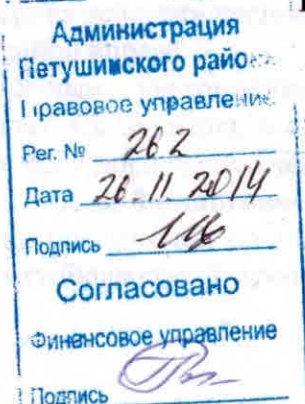 Администрация
Петушинского района
Правовое управление
Рег. № 262
Дата 26.11.2014
Подпись
Согласовано
Финансовое управление
Подпись